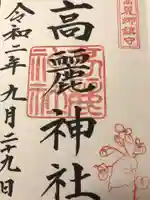 高麗郷鎮守
高麗神社
令和二年九月二十九日